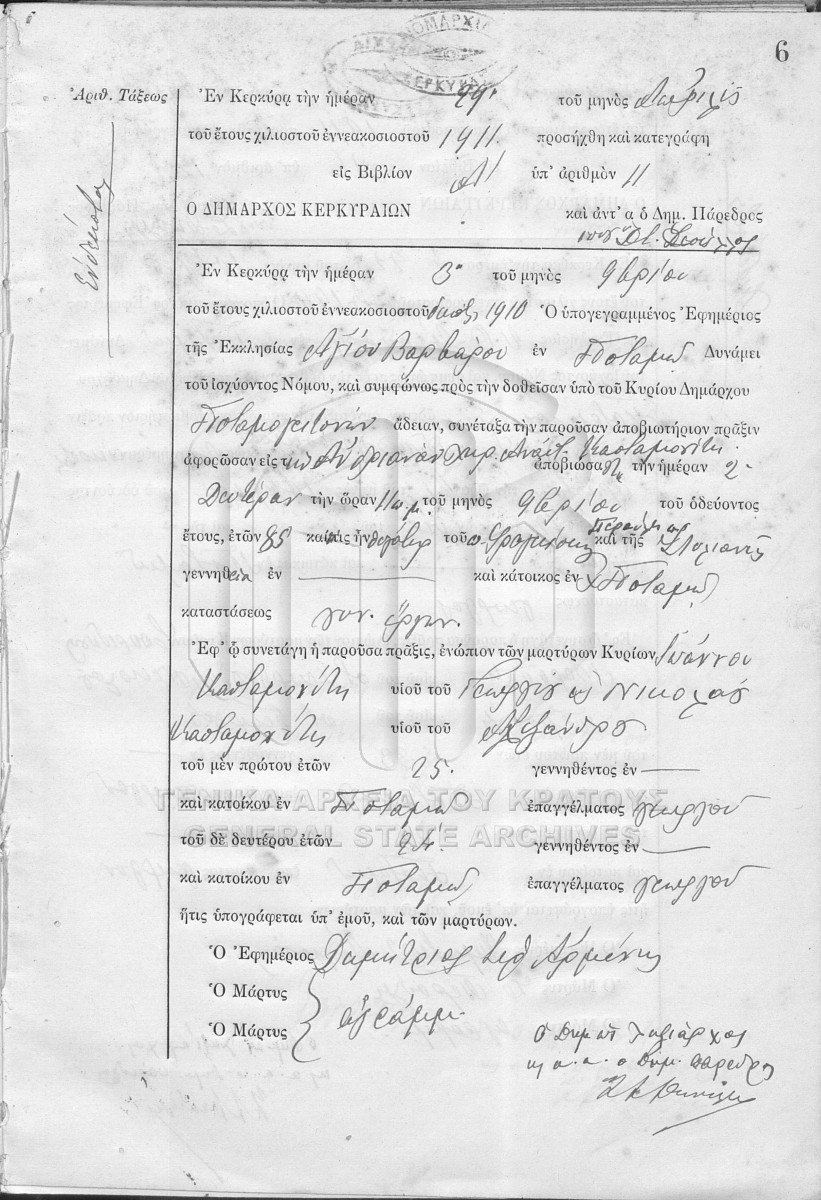 6
Ἀριθ. Τάξεως
Ἐν Κερκύρᾳ τὴν ἡμέραν 29 τοῦ μηνὸς Ἀπριλίου
τοῦ ἔτους χιλιοστοῦ ἐννεακοσιοστοῦ 1911. προσήχθη καὶ κατεγράφη
εἰς Βιβλίον Α' ὑπ' ἀριθμὸν 11
Ὁ ΔΗΜΑΡΧΟΣ ΚΕΡΚΥΡΑΙΩΝ καὶ ἀντ' α ὁ Δημ. Πάρεδρος
Ἑνδεκάτη
Ἐν Κερκύρᾳ τὴν ἡμέραν 3 τοῦ μηνὸς 9βρίου
τοῦ ἔτους χιλιοστοῦ ἐννεακοσιοστοῦ 1910 Ὁ ὑπογεγραμμένος Ἐφημέριος
τῆς Ἐκκλησίας Ἁγίου Βαρβάρου ἐν Ποταμῷ Δυνάμει
τοῦ ἰσχύοντος Νόμου, καὶ συμφώνως πρὸς τὴν δοθεῖσαν ὑπὸ τοῦ Κυρίου Δημάρχου
Ποταμογειτόνων ἄδειαν, συνέταξα τὴν παροῦσαν ἀποβιωτήριον πρᾶξιν
ἀφορῶσαν εἰς τὴν Ἀνδριανὰν χηρ. Ἀναστ. Κασταμονίτη
ἀποβιώσασαν τὴν ἡμέραν 2
Δευτέραν τὴν ὥραν 11 π.μ. τοῦ μηνὸς 9βρίου τοῦ ὁδεύοντος
ἔτους, ἐτῶν 85 καὶ τις ἦν θυγάτηρ τοῦ π. Φραγκίσκου καὶ τῆς Στυλιανῆς
γεννηθεῖσα ἐν — καὶ κάτοικος ἐν Ποταμῷ
καταστάσεως γυν. ἔργων.
Ἐφ' ᾧ συνετάγη ἡ παροῦσα πρᾶξις, ἐνώπιον τῶν μαρτύρων Κυρίων Ἰωάννου
Κασταμονίτη υἱοῦ τοῦ Γεωργίου κ Νικολάου
Κασταμονίτη υἱοῦ τοῦ Ἀλεξάνδρου
τοῦ μὲν πρώτου ἐτῶν 25. γεννηθέντος ἐν —
καὶ κατοίκου ἐν Ποταμῷ ἐπαγγέλματος γεωργοῦ
ΓΕΝΙΚΑ ΑΡΧΕΙΑ ΤΟΥ ΚΡΑΤΟΥΣ
GENERAL STATE ARCHIVES
τοῦ δὲ δευτέρου ἐτῶν 24. γεννηθέντος ἐν —
καὶ κατοίκου ἐν Ποταμῷ ἐπαγγέλματος γεωργοῦ
ἥτις ὑπογράφεται ὑπ' ἐμοῦ, καὶ τῶν μαρτύρων.
Ὁ Ἐφημέριος Δημήτριος Ἀρμένης
Ὁ Μάρτυς
ἀγράμμ.
Ὁ Μάρτυς
κ. α. α. ὁ Δημ. πάρεδρος